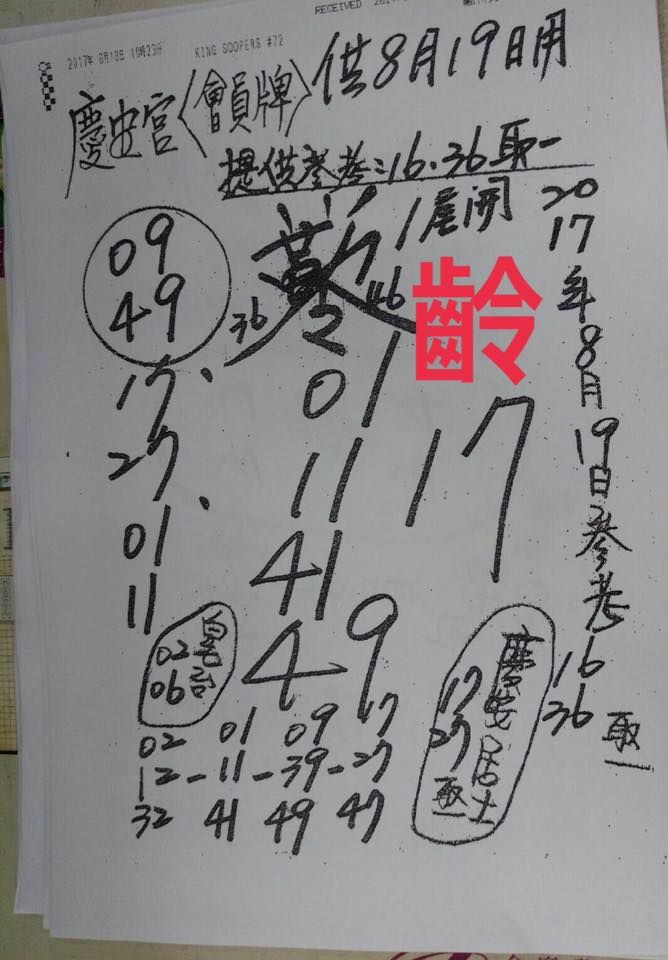 2017年 8月18日 10時23分 KING SOOPERS #72
RECEIVED
慶安宮〈會員牌〉供8月19日用
提供參考:16.36取一
1尾開
09
49
36
46
齡
17
27
01
11
01
11
41
49
17
2017年8月19日參考
16
36
取一
02
06
慶安居士
17
27
取一
02 01 09 17
12-11-39-27
32 41 49 47